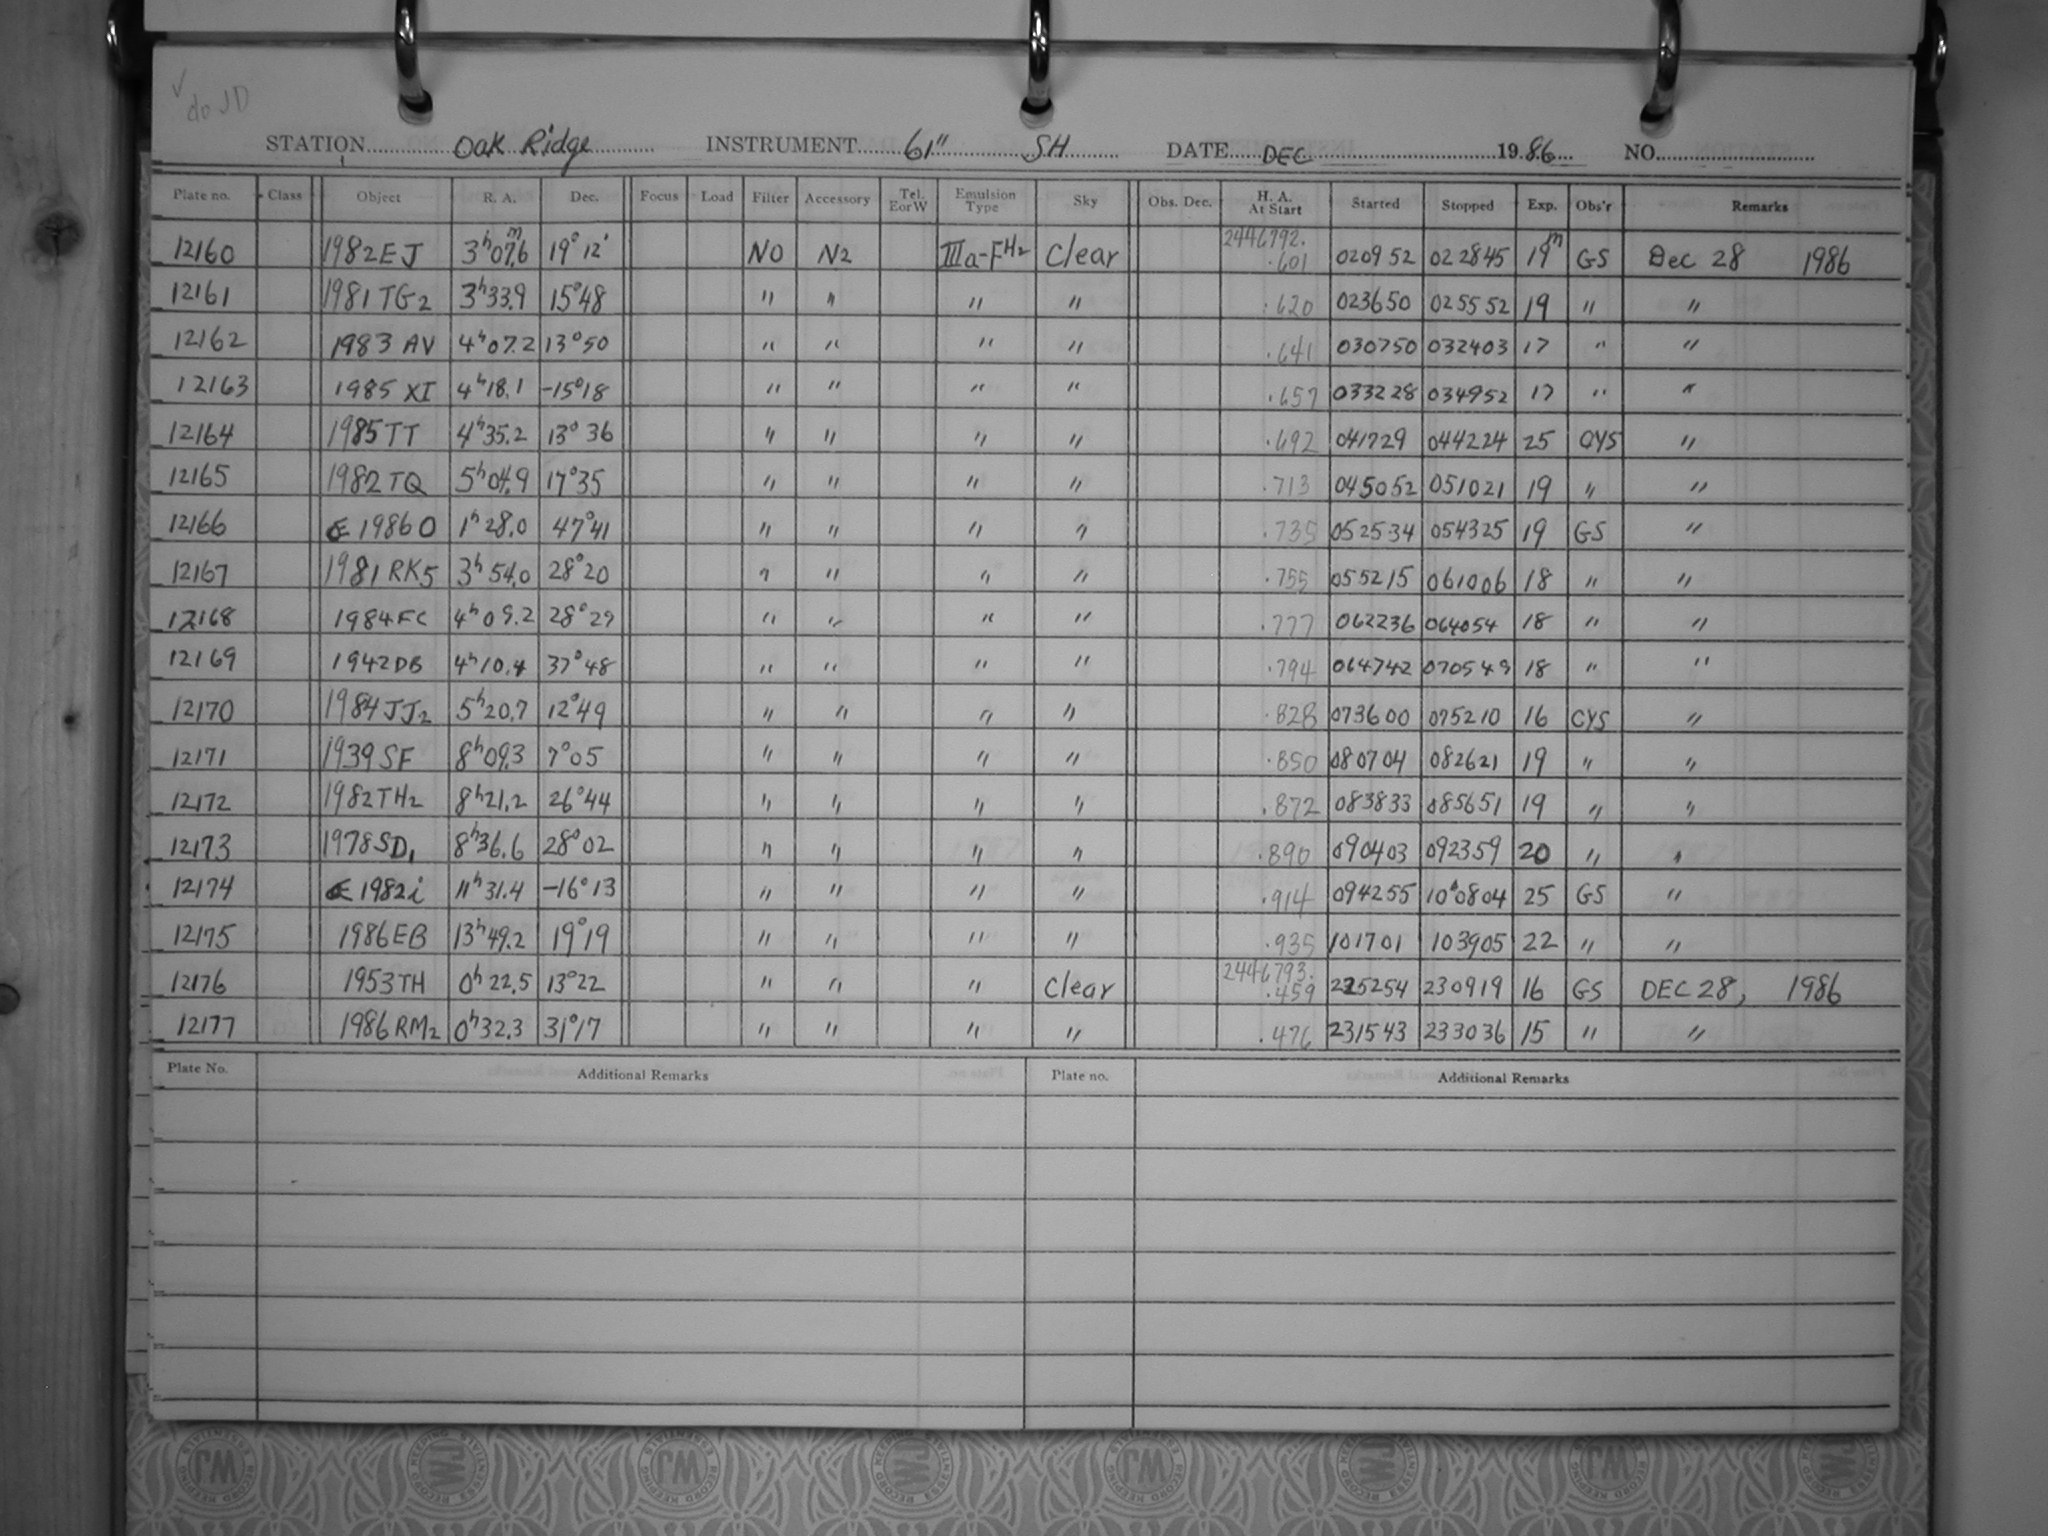 ✓ do JD
STATION Oak Ridge INSTRUMENT 61" SH DATE DEC 1986 NO.
Plate no. Class Object R. A. Dec. Focus Load Filter Accessory Tel. E or W Emulsion Type Sky Obs. Dec. H. A. At Start Started Stopped Exp. Obs'r Remarks
12160 1982EJ 3h07.6m 19°12' NO N2 IIIa-F H2 Clear 2446792. .601 020952 022845 19m GS Dec 28 1986
12161 1981TG2 3h33.9 15°48 " " " " .620 023650 025552 19 " "
12162 1983 AV 4h07.2 13°50 " " " " .641 030750 032403 17 " "
12163 1985 XI 4h18.1 -15°18 " " " " .657 033228 034952 17 " "
12164 1985TT 4h35.2 13°36 " " " " .692 041729 044224 25 CYS "
12165 1982TQ 5h04.9 17°35 " " " " .713 045052 051021 19 " "
12166 C 1986O 1h28.0 47°41 " " " " .735 052534 054325 19 GS "
12167 1981RK5 3h54.0 28°20 " " " " .755 055215 061006 18 " "
12168 1984FC 4h09.2 28°29 " " " " .777 062236 064054 18 " "
12169 1942DB 4h10.4 37°48 " " " " .794 064742 070549 18 " "
12170 1984JJ2 5h20.7 12°49 " " " " .828 073600 075210 16 CYS "
12171 1939SF 8h09.3 7°05 " " " " .850 080704 082621 19 " "
12172 1982TH2 8h21.2 26°44 " " " " .872 083833 085651 19 " "
12173 1978SD1 8h36.6 28°02 " " " " .890 090403 092359 20 " "
12174 C 1982i 11h31.4 -16°13 " " " " .914 094255 100804 25 GS "
12175 1986EB 13h49.2 19°19 " " " " .935 101701 103905 22 " "
12176 1953TH 0h22.5 13°22 " " " Clear 2446793. .459 225254 230919 16 GS DEC 28, 1986
12177 1986RM2 0h32.3 31°17 " " " " .476 231543 233036 15 " "
Plate No. Additional Remarks Plate no. Additional Remarks